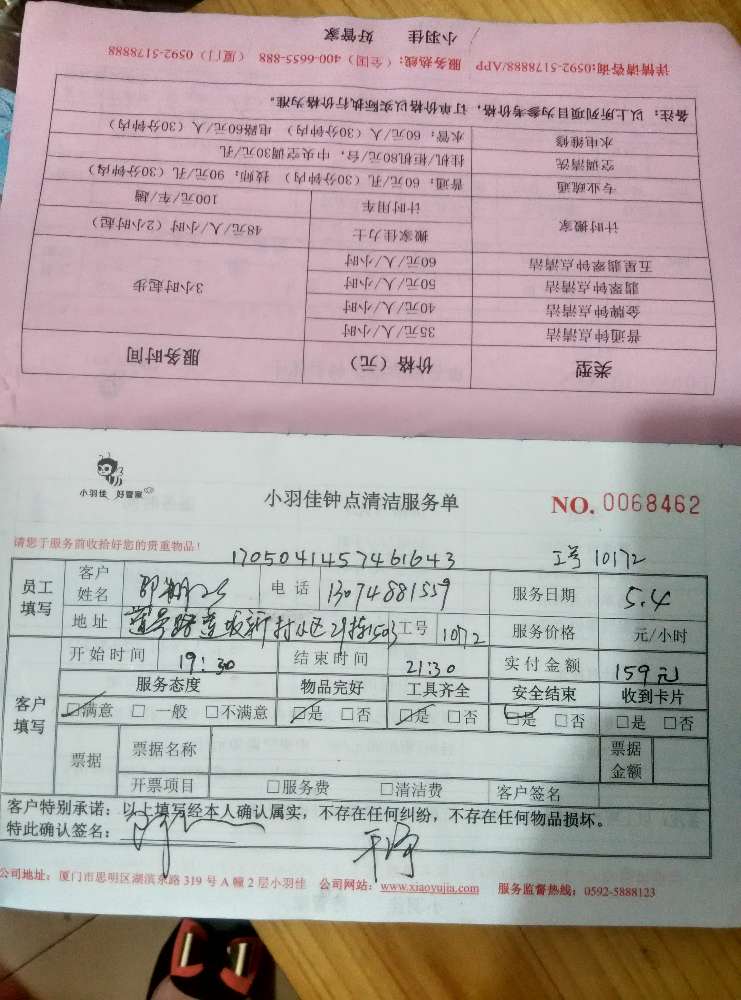 小羽佳 好管家
详情请咨询:0592-5178888/APP 服务热线:(全国)400-6655-888 (厦门)0592-5178888
备注:以上所列项目为参考价格,订单价格以实际执行价格为准。
水电维修 水管:60元/人(30分钟内) 电路60元/人(30分钟内)
空调清洗 挂机/柜机80元/台,中央空调30元/孔
专业疏通 普通:60元/孔(30分钟内) 技师:90元/孔(30分钟内)
计时搬家 计时用车 100元/车/趟
搬家佳力士 48元/人/小时(2小时起)
五星翡翠钟点清洁 60元/人/小时
翡翠钟点清洁 50元/人/小时 3小时起步
金牌钟点清洁 40元/人/小时
普通钟点清洁 35元/人/小时
类型 价格(元) 服务时间
小羽佳 好管家
小羽佳钟点清洁服务单 NO. 0068462
请您于服务前收拾好您的贵重物品!
1705041457461643 工号 10172
员工填写 客户姓名 电话 13074881559 服务日期 5.4
地址 新村小区 1503 工号 1072 服务价格 元/小时
客户填写 开始时间 19:30 结束时间 21:30 实付金额 159元
服务态度 物品完好 工具齐全 安全结束 收到卡片
☑满意 □一般 □不满意 ☑是 □否 ☑是 □否 ☑是 □否 □是 □否
票据 票据名称 票据金额
开票项目 □服务费 □清洁费 客户签名
客户特别承诺:以上填写经本人确认属实,不存在任何纠纷,不存在任何物品损坏。
特此确认签名:
公司地址:厦门市思明区湖滨东路 319 号 A 幢 2 层小羽佳 公司网站:www.xiaoyujia.com 服务监督热线:0592-5888123